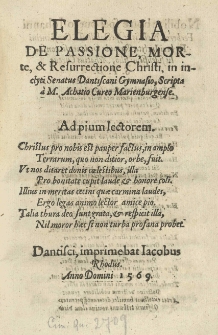 ELEGIA
DE PASSIONE, MOR-
te, & Resurrectione Christi, in in-
clyti Senatus Dantiscani Gymnasio, Scripta
à M. Achatio Cureo Marienburgense.
Ad pium lectorem.
Christus pro nobis est pauper factus, in amplo
Terrarum, quo non ditior, orbe, fuit.
Vt nos ditaret donis cœlestibus, illa
Pro bonitate cupit laude & honore coli.
Illius in meritas etiam quæ carmina laudes,
Ergo legas animo lector amice pio.
Talia thura deo sunt grata, & respicit illa,
Nil moror hæc si non turba profana probet.
Dantisci, imprimebat Iacobus
Rhodus.
Anno Domini 1569.